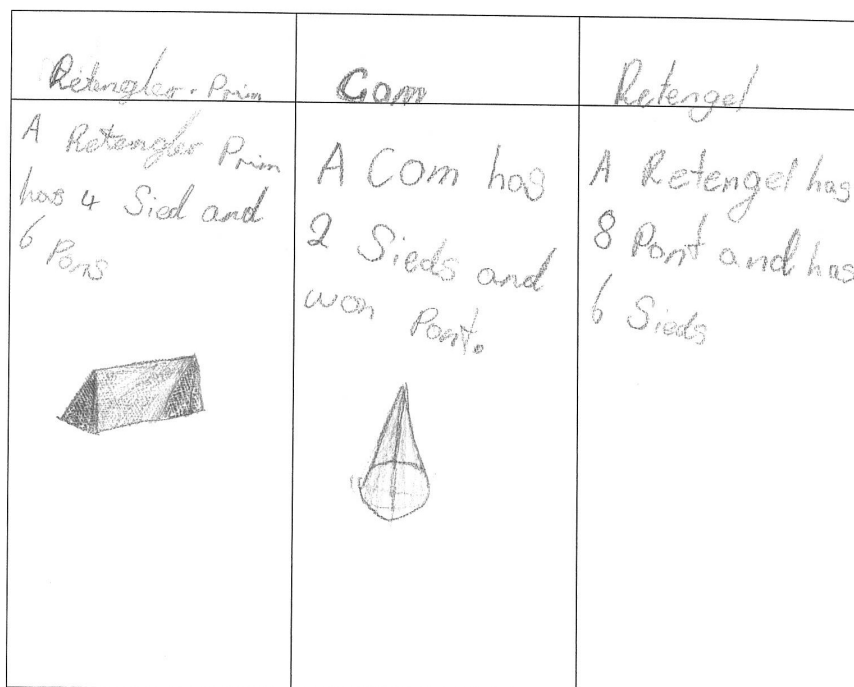 Retengler. Prim
Com
Retengel
A Retengler Prim
has 4 Sied and
6 Pons
A Com has
2 Sieds and
won Pont.
A Retengel has
8 Pont and has
6 Sieds